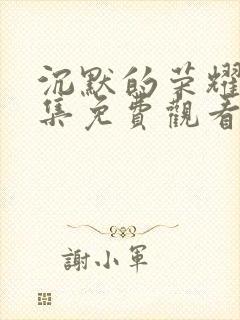 沉默的荣耀
集免費觀看
謝小軍